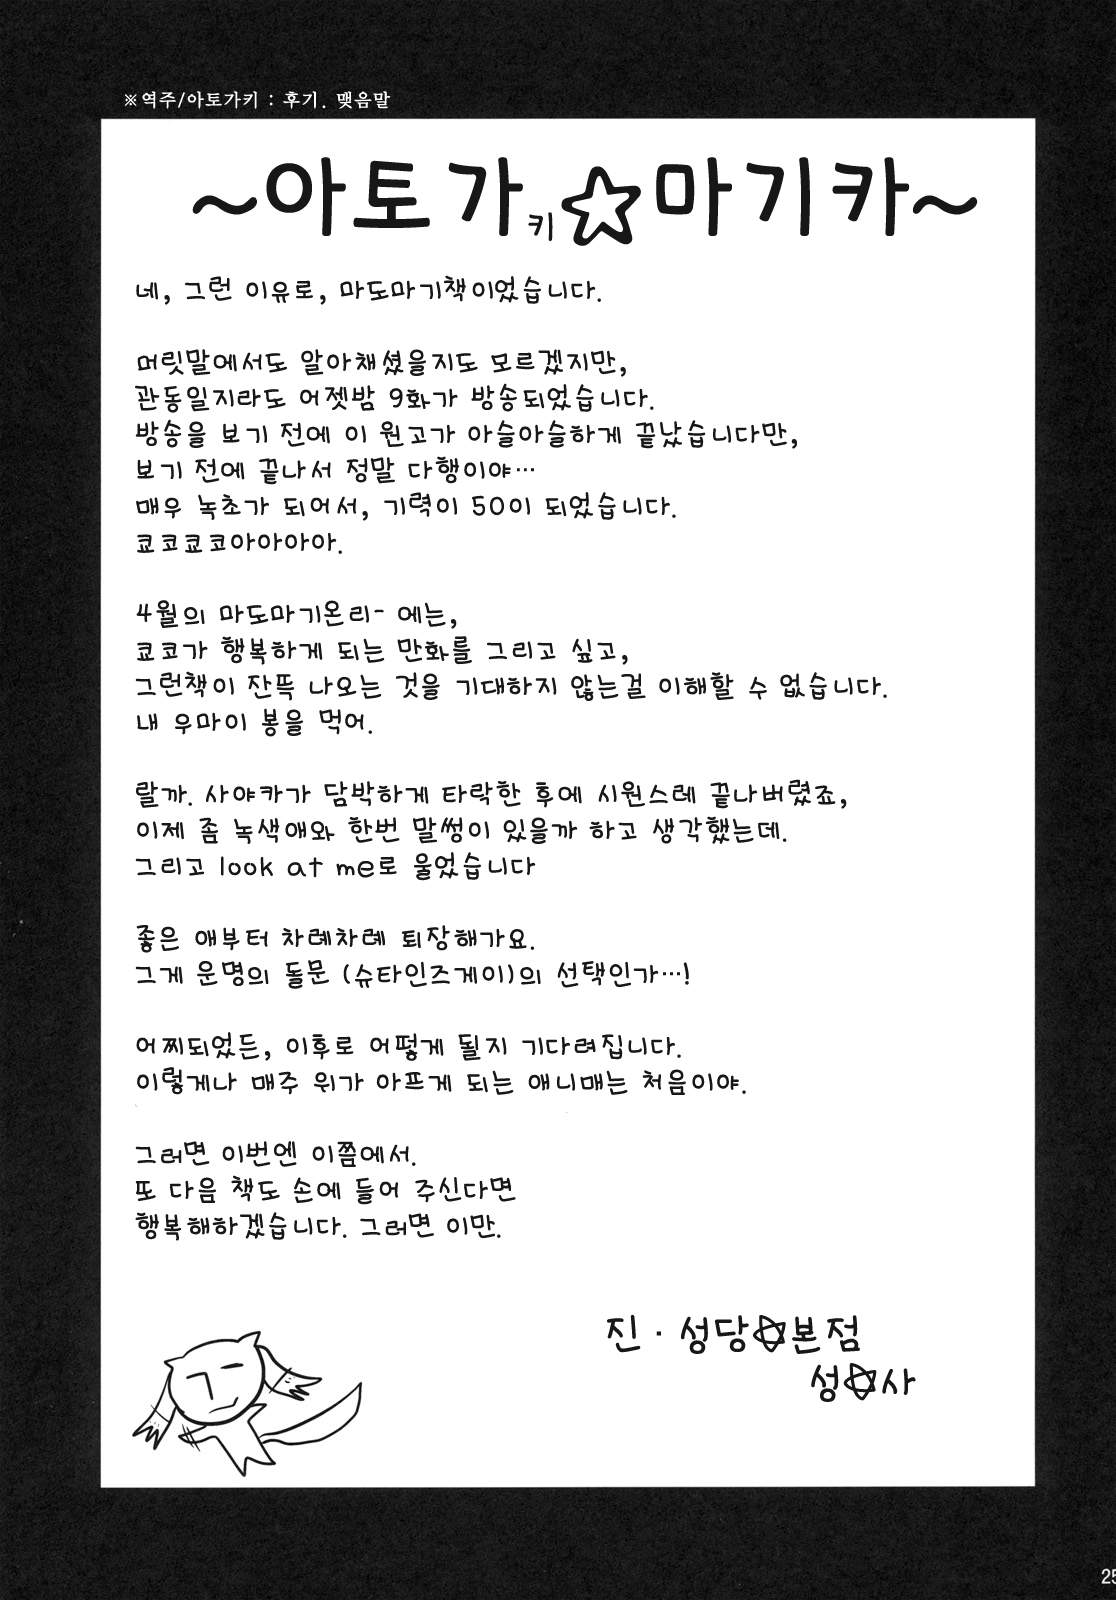 ※역주/아토가키 : 후기. 맺음말
~아토가키☆마기카~
네, 그런 이유로, 마도마기책이었습니다.
머릿말에서도 알아채셨을지도 모르겠지만,
관동일지라도 어젯밤 9화가 방송되었습니다.
방송을 보기 전에 이 원고가 아슬아슬하게 끝났습니다만,
보기 전에 끝나서 정말 다행이야…
매우 녹초가 되어서, 기력이 50이 되었습니다.
쿄코쿄코아아아아.
4월의 마도마기온리- 에는,
쿄코가 행복하게 되는 만화를 그리고 싶고,
그런책이 잔뜩 나오는 것을 기대하지 않는걸 이해할 수 없습니다.
내 우마이 봉을 먹어.
랄까. 사야카가 담박하게 타락한 후에 시원스레 끝나버렸죠,
이제 좀 녹색애와 한번 말썽이 있을까 하고 생각했는데.
그리고 look at me로 울었습니다
좋은 애부터 차례차례 퇴장해가요.
그게 운명의 돌문 (슈타인즈게이)의 선택인가…!
어찌되었든, 이후로 어떻게 될지 기다려집니다.
이렇게나 매주 위가 아프게 되는 애니매는 처음이야.
그러면 이번엔 이쯤에서.
또 다음 책도 손에 들어 주신다면
행복해하겠습니다. 그러면 이만.
진·성당✡본점
성✡사
25